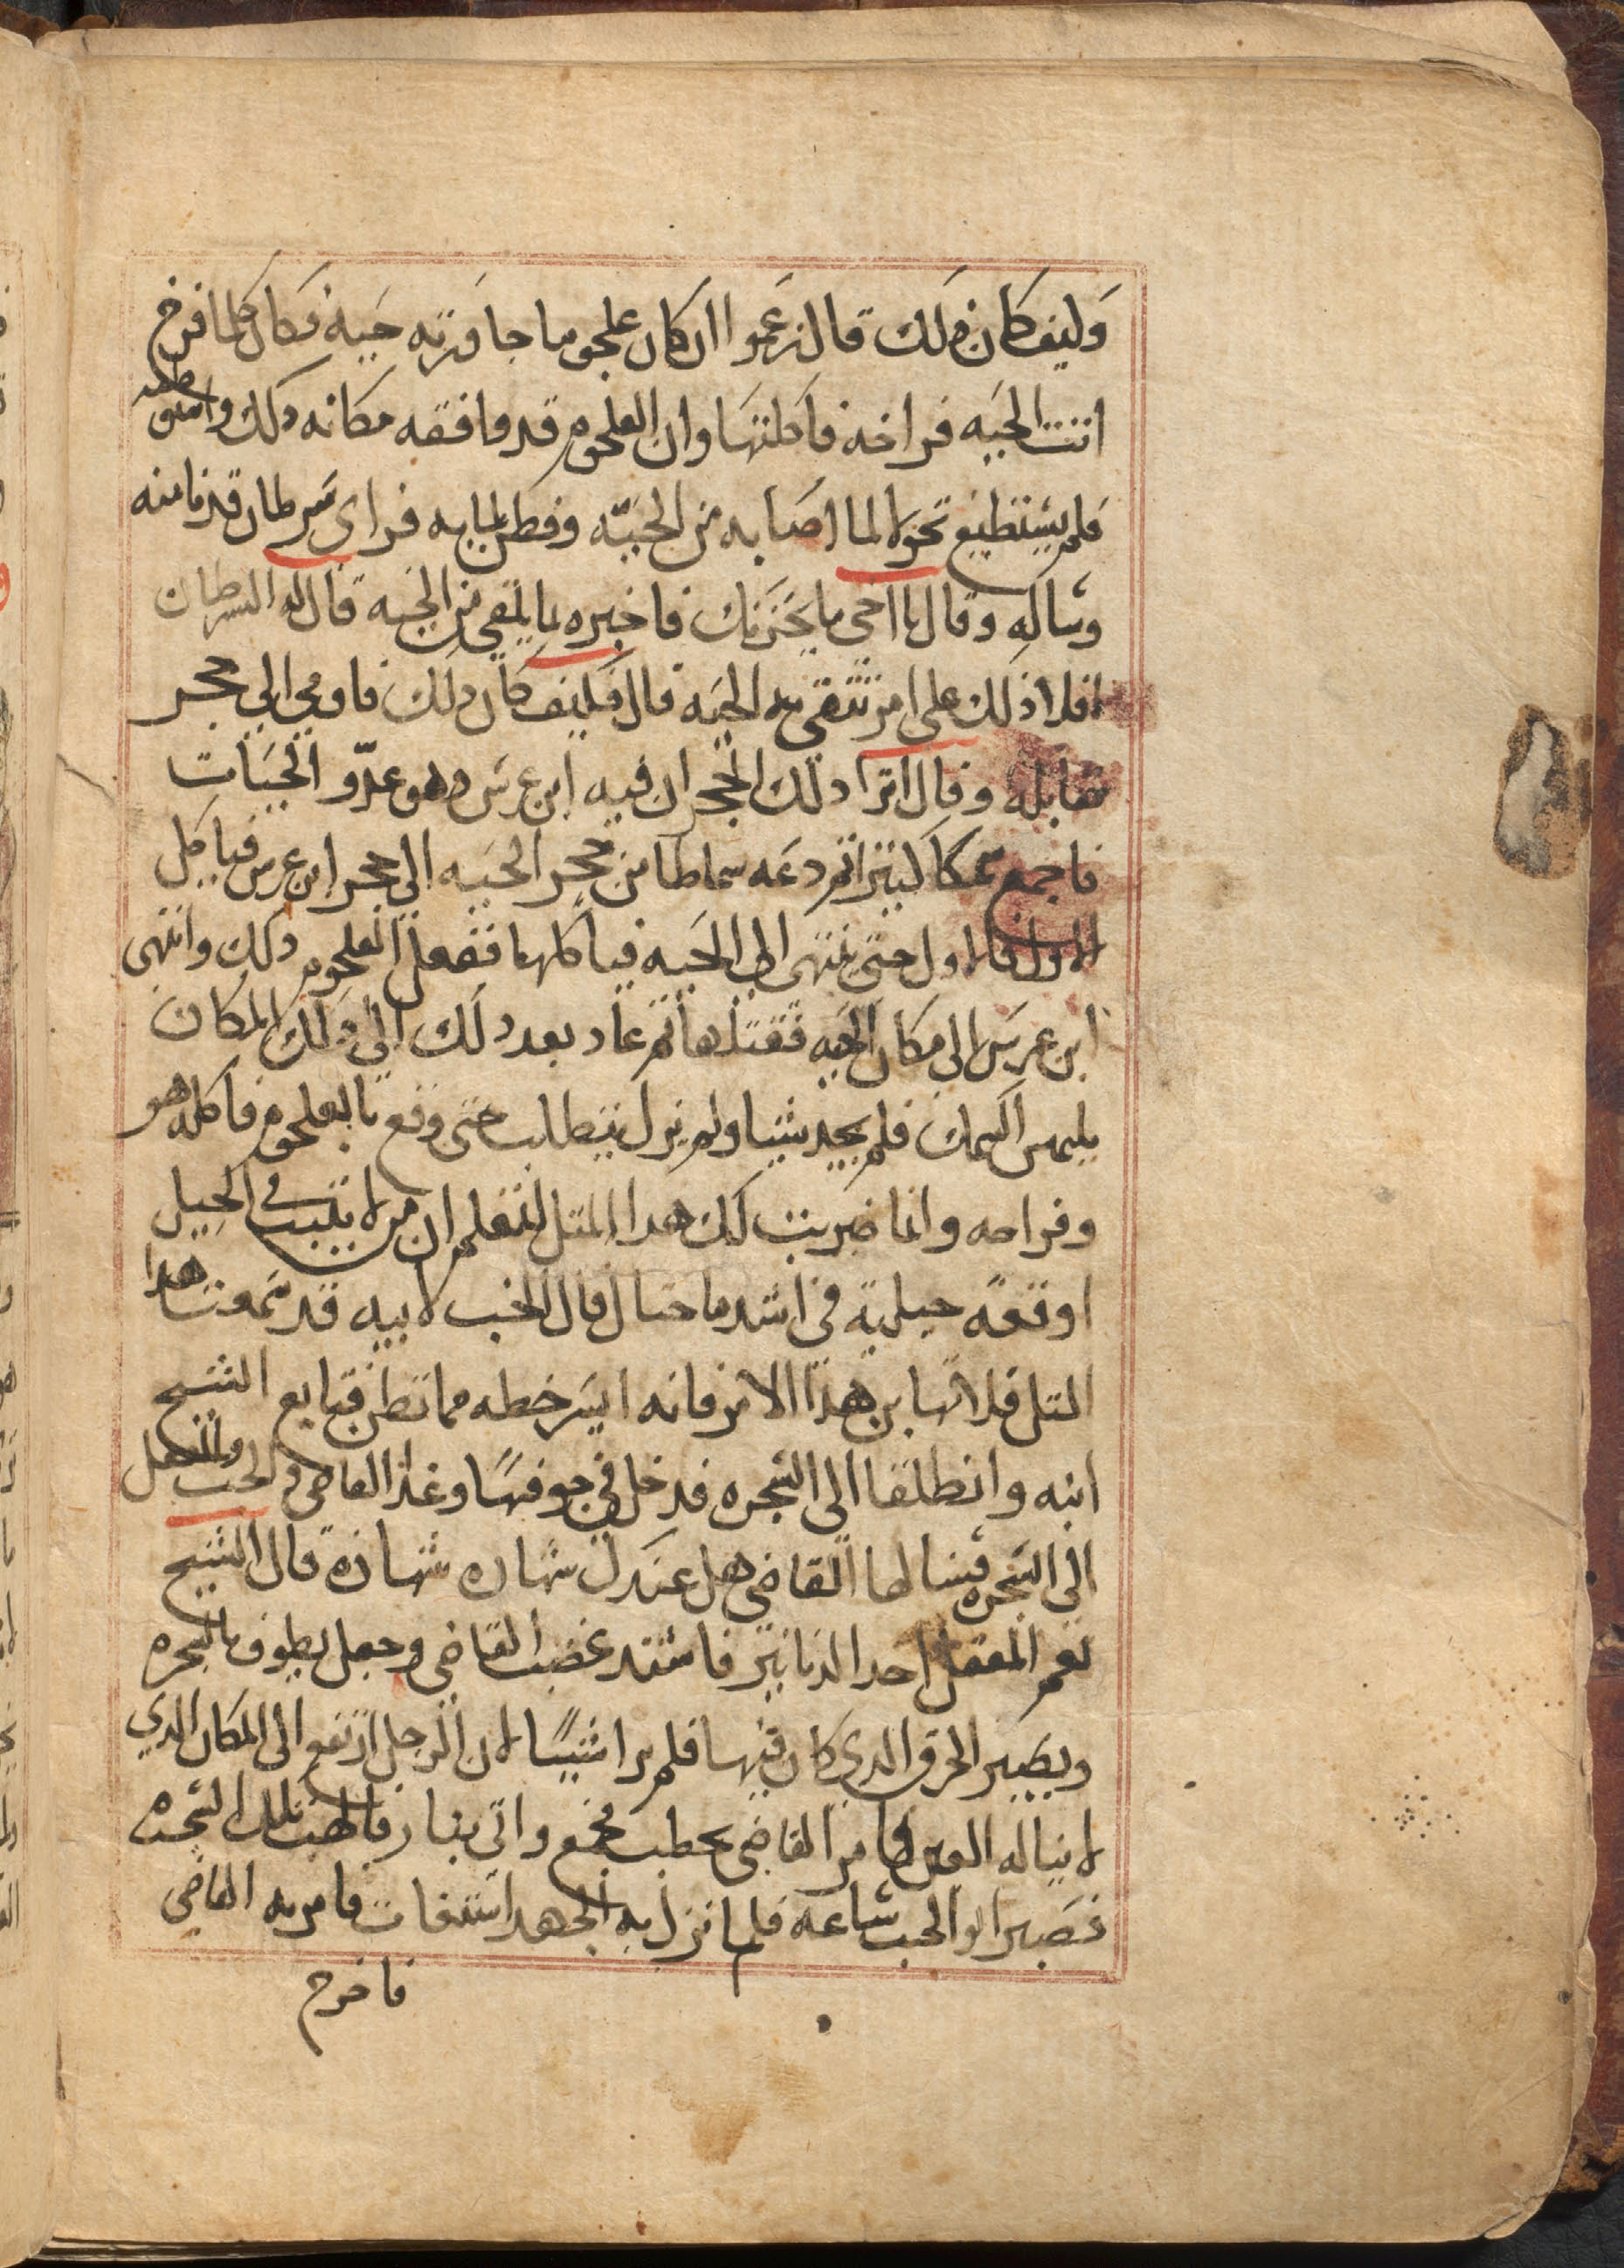 وليف كان ذلك قال زعموا ان كان علجوما جاورته حيه فكان كلما افرخ
اتت الحيه فراخه فاكلتها وان العلجوم قد وافقه مكانه ذلك
فلم يستطيع تحولا لما اصابه من الحيّه وفطن لما به فراى سرطان قد نا منه
وساله وقال يا اخى ما يحزنك فاخبره بما يلقى من الحيه قال له السرطان
افلا ادلك على امر تتقى به الحيه قال فكيف كان ذلك فاومى الى جحر
مقابله وقال اترا ذلك الجحر ان فيه ابن عرس وهو عدّو الحيات
فاجمع سمكا كبيرا ثم دعه سماطا من جحر الحيه الى جحر ابن عرس فياكل
الاول فالاول حتى ينتهى الى الحيه فياكلها ففعل العلجوم ذلك وانتهى
ابن عرس الى مكان الحيه فقتلها ثم عاد بعد ذلك الى ذلك المكان
يلتمس السمك فلم يجد شيا ولم يزل يتطلب حتى وقع بالعلجوم فاكله هو
وفراخه وانما ضربت لك هدا المتل لتعلم ان من لا يتبت في الحيل
اوقعه حيلته في اشد ما احتال قال الخب لابيه قد سمعت هدا
المتل فلا تهابن هذا الامر فانه ايسر خطه مما تظن فتابع الشيخ
ابنه وانطلقا الى الشجره فدخل في جوفها وغدا القاضى والخب والمغفل
الى الشجره فسالها القاضى هل عندك شهاده شهاده قال الشيخ
نعم المغفل اخد الدنانير فاشتد غضب القاضى وجعل يطوف بالشجره
ويصير الخرق الدي كان فيها فلم يرا شيئًا لان الرجل ارتفع الى المكان الدي
لا يناله العين فامر القاضى بحطب فجمع واتى بنار فالهب تلك الشجره
فصبر ابو الخب ساعه فلما نزل به الجهد استغات فامر به القاضى
فاخرج